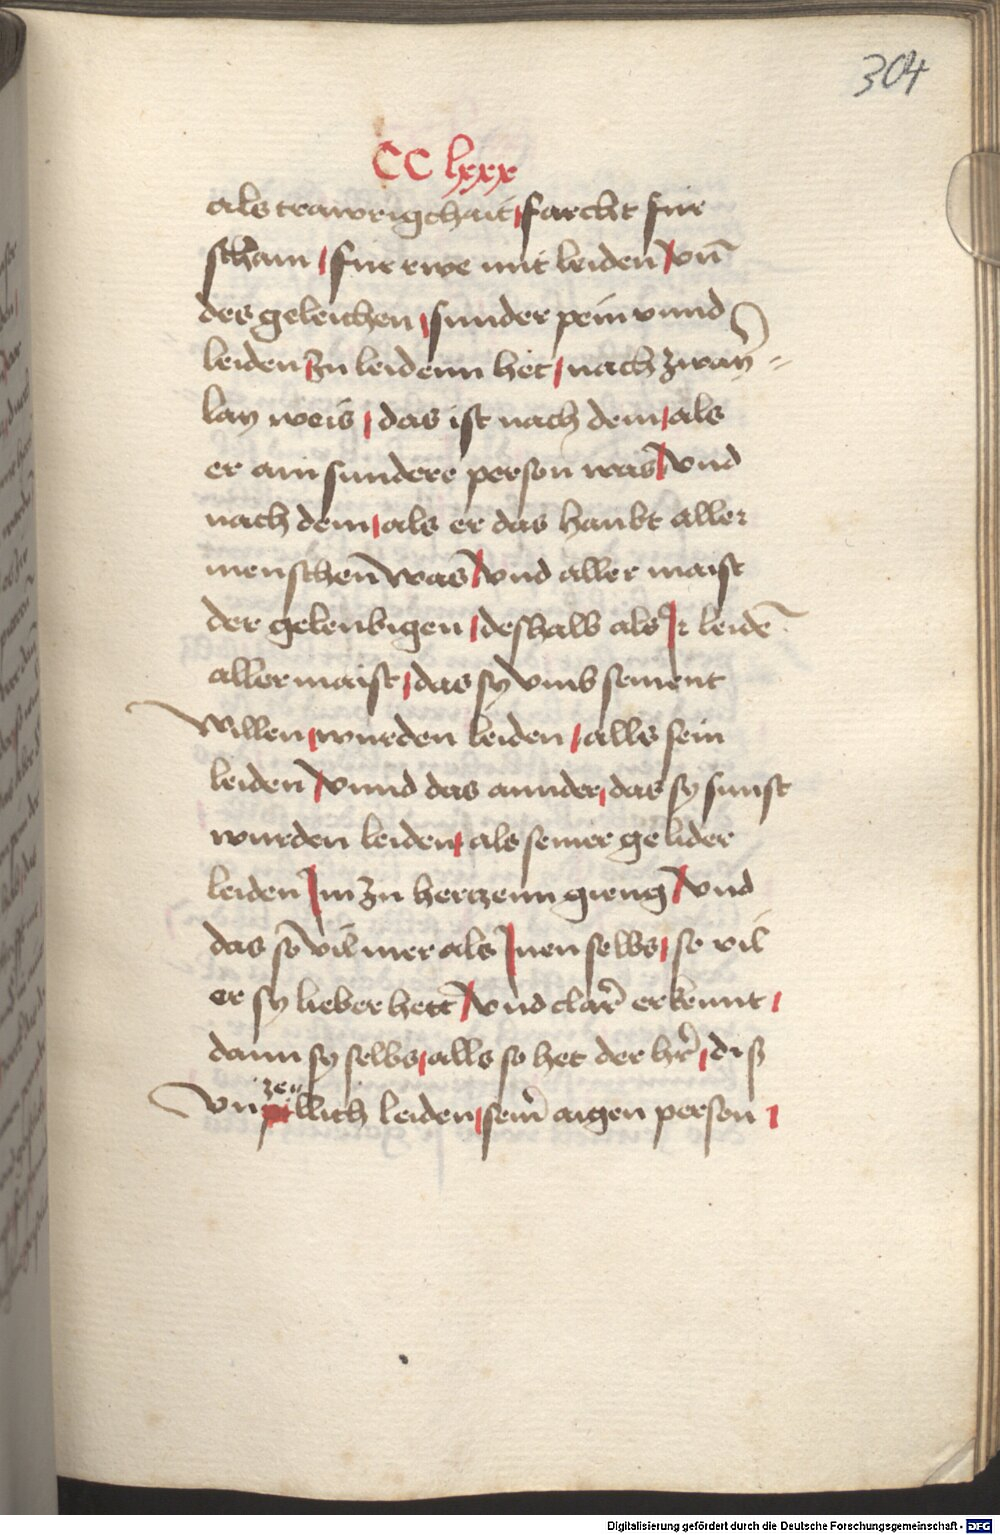 304
CC lxxx
als trawrigchait / farcht für
scham / für rwe mit leiden / vn̄
des geleichen / sunder pein vnnd
leiden / zu leidenn het / nach zwaÿ=
lay weis / das ist nach dem / als
er ain sundere person was / vnd
nach dem / als er das haubt aller
menschen was / vnd aller maist
der geleubigen / deshalb als Ir leidē
aller maist / das sy vmb sement
willen / wurden leiden / alls sein
leiden / vnnd das annder / das sy sunst
wurden leiden / als seiner gelider
leiden Im zu hertzenn gieng / vnd
das so vil mer als Inen selbs / so vil
er sy lieber hett / vnd clar̄ erkennt /
dann sy selbs / alls so het der hr̄ / diß
vnzellich leiden / sein̄ aigen person /
Digitalisierung gefördert durch die Deutsche Forschungsgemeinschaft - DFG